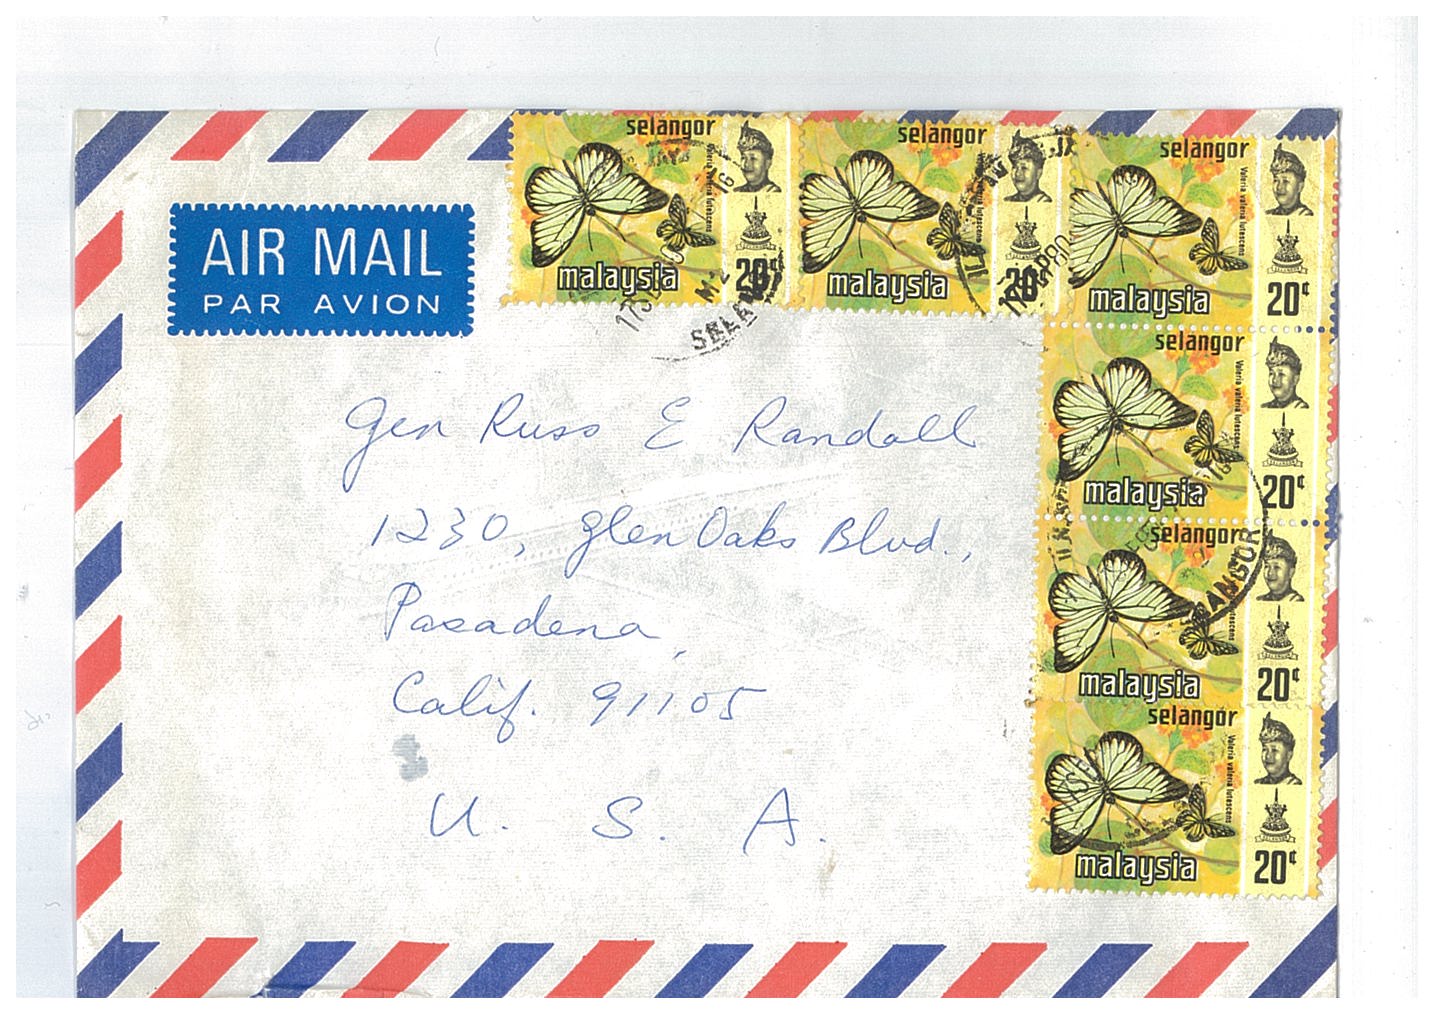 AIR MAIL
PAR AVION
selangor
Valeria valeria lutescens
malaysia
20¢
selangor
Valeria valeria lutescens
malaysia
20¢
selangor
Valeria valeria lutescens
malaysia
20¢
selangor
Valeria valeria lutescens
malaysia
20¢
selangor
Valeria valeria lutescens
malaysia
20¢
selangor
Valeria valeria lutescens
malaysia
20¢
Gen Russ E Randall
1230, Glen Oaks Blvd.,
Pasadena,
Calif. 91105
U. S. A.